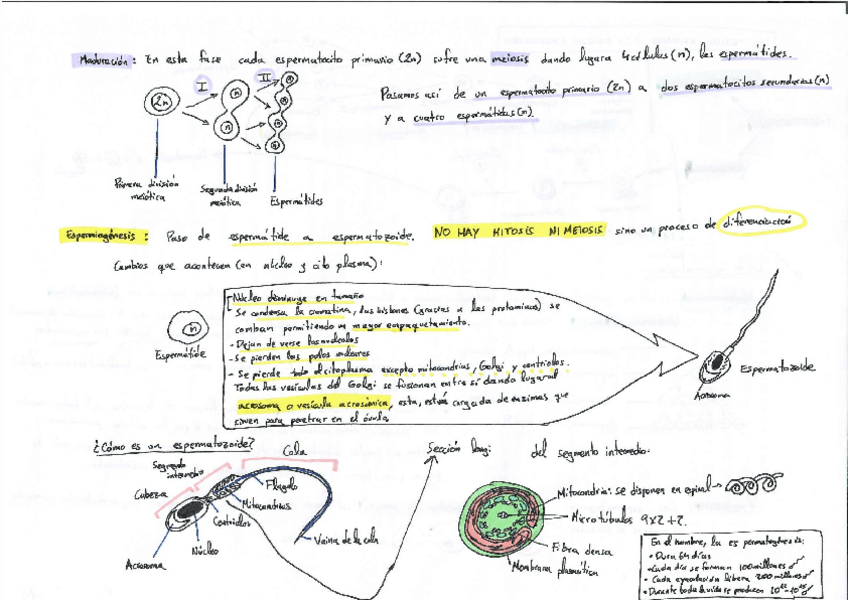 Maduración: En esta fase cada espermatocito primario (2n) sufre una meiosis dando lugar a 4 células (n), las espermátides.
I II
2n n n n n n n
Pasamos así de un espermatocito primario (2n) a dos espermatocitos secundarios (n)
y a cuatro espermátides (n).
Primera división meiótica
Segunda división meiótica
Espermátides
Espermiogénesis: Paso de espermátide a espermatozoide. NO HAY MITOSIS NI MEIOSIS sino un proceso de diferenciación
Cambios que acontecen (en núcleo y citoplasma):
Núcleo disminuye en tamaño
Se condensa la cromatina, las histonas (gracias a las protaminas) se
cambian permitiendo un mayor empaquetamiento.
- Dejan de verse los nucleolos
- Se pierden los poros nucleares
- Se pierde todo el citoplasma excepto mitocondrias, Golgi y centriolos.
Todas las vesículas del Golgi se fusionan entre sí dando lugar al
acrosoma o vesícula acrosómica, esta, estará cargada de enzimas que
sirven para penetrar en el óvulo
n
Espermátide
Espermatozoide
Acrosoma
¿Cómo es un espermatozoide?
Cola
Segmento intermedio
Cabeza
Flagelo
Mitocondrias
Centriolos
Núcleo
Vaina de la cola
Acrosoma
Sección longi. del segmento intermedio:
Mitocondria: se disponen en espiral
Microtúbulos 9x2+2.
Fibra densa
Membrana plasmática
En el hombre, la espermatogénesis:
• Dura 64 días
• Cada día se forman 100 millones
- Cada eyaculación libera 200 millones
• Durante toda la vida se producen